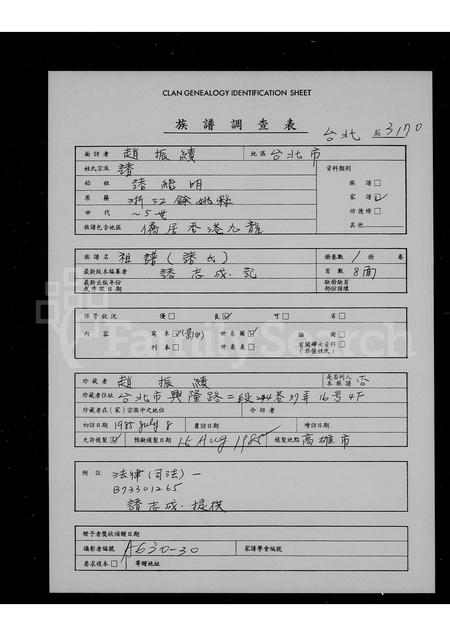 CLAN GENEALOGY IDENTIFICATION SHEET
族譜調查表
台北 3170
面訪者 趙振績 地區 台北市
姓氏宗派 諸 資料類別
始祖 諸繼明 族譜□
原籍 浙江餘姚縣 家譜☑
世代 ~5世 功德榜□
族譜包含地區 僑居香港九龍 其他
族譜名 祖譜(諸氏) 冊卷數 1 冊 卷
最新版本編纂者 諸志成.記 頁數 8面
最新出版年份或序現日期 缺冊缺頁部份積壞
保管狀況 優□ 良☑ 可□ 劣□
內容 寫本☑ 世系圖☑ 插圖□
刊本□ 世系表□ 有關婦女資料□(非僅姓氏)
珍藏者 趙振績 是否列入本族譜 否
珍藏者住址 台北市興隆路二段244巷37弄16号4F
珍藏者在(家)宗族中之地位 介紹者
初訪日期 1985 July 8 覆訪日期 增訪日期
允許複製☑ 預擬複製日期 15 Aug 1985 複製地點 高雄市
附註 法律(司法)一
B73301265
諸志成.提供
贈予者獎狀頒贈日期
攝影者編號 A630-30 家譜學會編號
要求複本□ 寄贈地址
FamilySearch